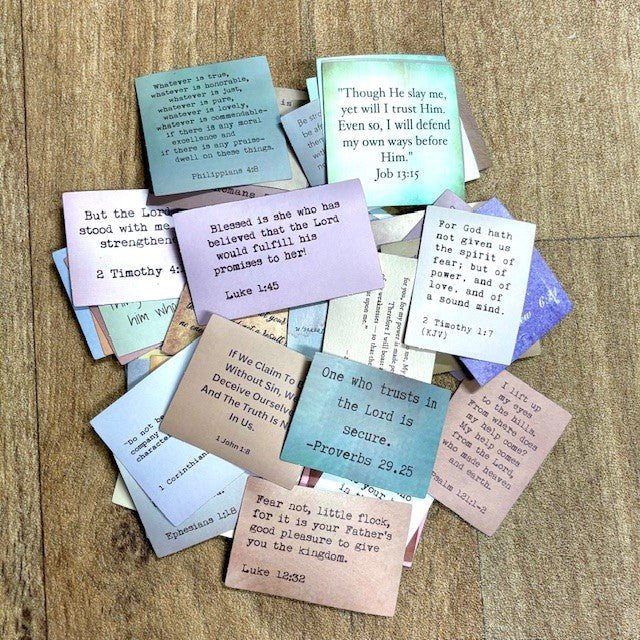 Whatever is true,
whatever is honorable,
whatever is just,
whatever is pure,
whatever is lovely,
whatever is commendable-
if there is any moral
excellence and
if there is any praise-
dwell on these things.
Philippians 4:8
"Though He slay me,
yet will I trust Him.
Even so, I will defend
my own ways before
Him."
Job 13:15
is
Be
be
But the Lord
stood with me
2 Timothy 4:
Blessed is she who has
believed that the Lord
would fulfill his
promises to her!
Luke 1:45
For God hath
not given us
the spirit of
fear; but of
power, and of
love, and of
a sound mind.
2 Timothy 1:7
(KJV)
him
for you, for my power is made
upon me."
If We Claim To
Without Sin, We
Deceive
And The Truth Is
In Us.
1 John 1:8
One who trusts in
the Lord is
secure.
-Proverbs 29.25
I lift up
my eyes
to the hills.
From where does
my help come?
My help comes
from the Lord,
who made heaven
and earth.
Psalm 121:1-2
-Do not be
1 Corinthian
Ephesians 1:18
Fear not, little flock,
for it is your Father's
good pleasure to give
you the kingdom.
Luke 12:32